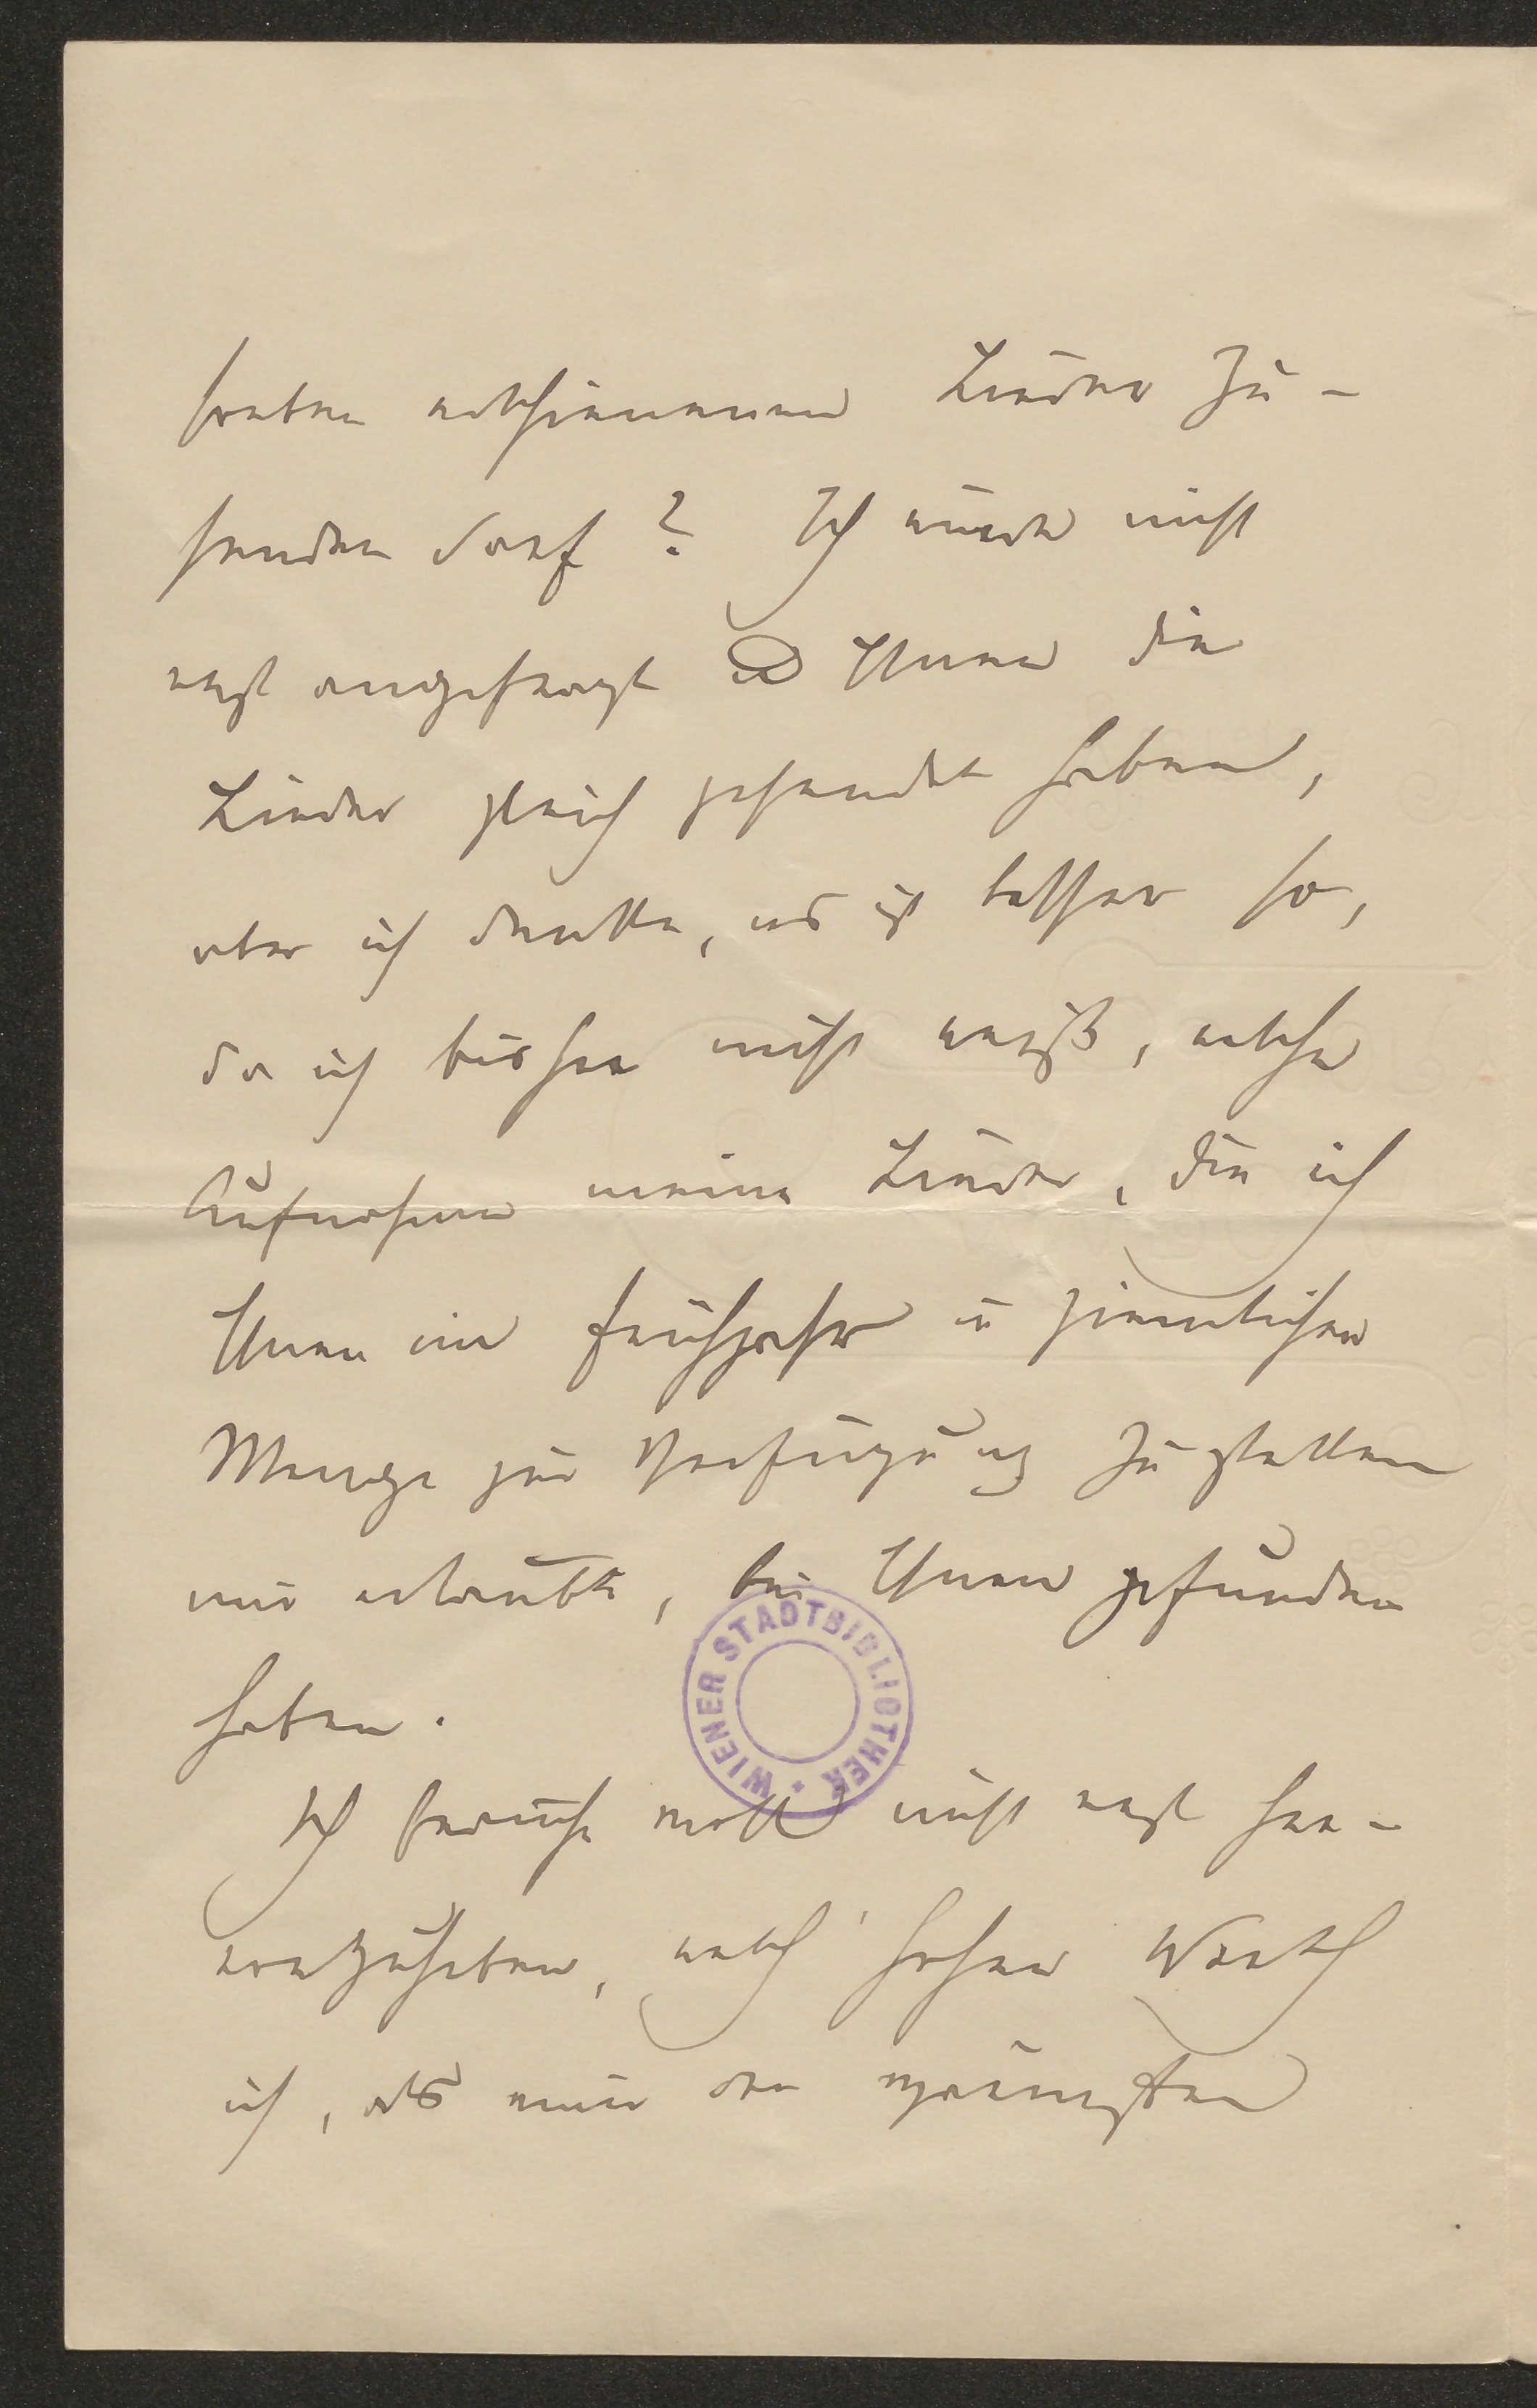 soeben erschienenen Lieder zu-
senden darf? Ich würde nicht
erst angefragt u Ihnen die
Lieder gleich gesendet haben,
aber ich denke, es ist besser so,
da ich bisher nicht weiß, welche
Aufnahme meine Lieder, die ich
Ihnen im Frühjahr in ziemlicher
Menge zur Verfügung zu stellen
mir erlaubte, bei Ihnen gefunden
haben.
Ich brauche wohl nicht erst her-
vorzuheben, welch' hohen Werth
ich, als einer der
WIENER STADTBIBLIOTHEK